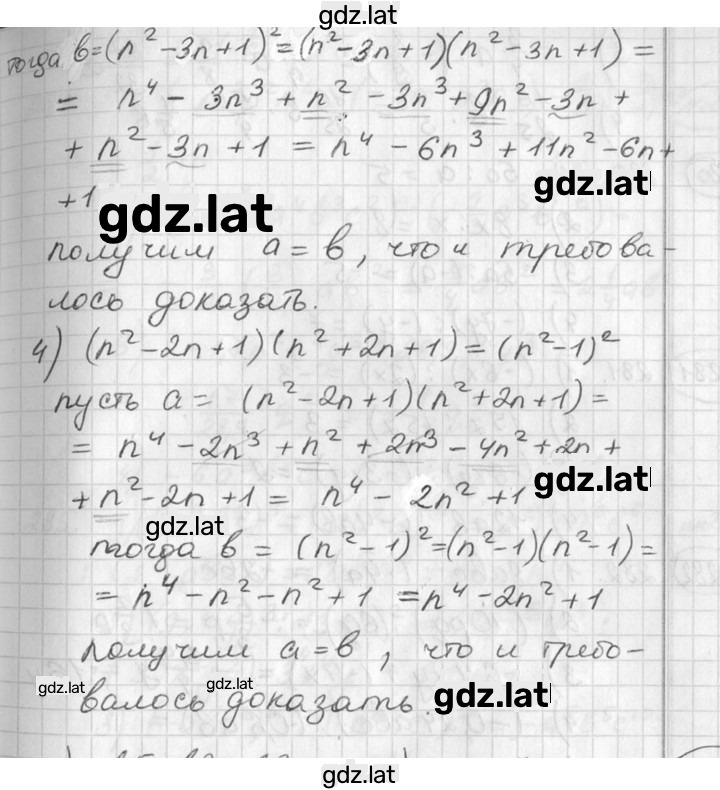 gdz.lat
тогда b=(n²-3n+1)²=(n²-3n+1)(n²-3n+1)=
= n⁴ - 3n³ + n² - 3n³ + 9n² - 3n +
+ n² - 3n + 1 = n⁴ - 6n³ + 11n² - 6n +
gdz.lat
+1
gdz.lat
получим a = b, что и требова-
лось доказать.
4) (n²-2n+1)(n²+2n+1)=(n²-1)²
пусть a = (n²-2n+1)(n²+2n+1)=
= n⁴ - 2n³ + n² + 2n³ - 4n² + 2n +
gdz.lat
+ n² - 2n + 1 = n⁴ - 2n² + 1
gdz.lat
тогда b = (n²-1)²=(n²-1)(n²-1)=
= n⁴ - n² - n² + 1 = n⁴ - 2n² + 1
получим a = b, что и требо-
gdz.lat gdz.lat
валось доказать.
gdz.lat
gdz.lat